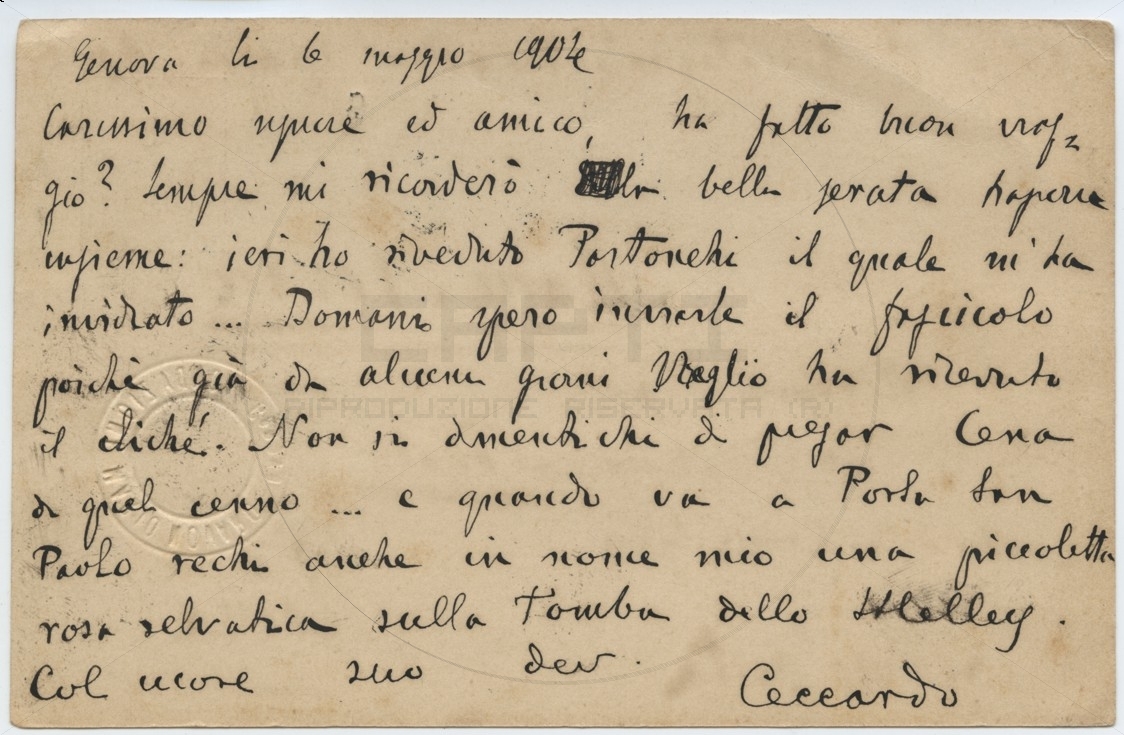 Genova li 6 maggio 1904
Carissimo signore ed amico, ha fatto buon viag=
gio? Sempre mi ricorderò la bella serata trascorsa
insieme: ieri ho riveduto Pastonchi il quale m'ha
invidiato ... Domani spero inviarle il fascicolo
poichè già da alcuni giorni Veglio ha ricevuto
il cliché. Non si dimentichi di pregar Cena
di quel cenno ... e quando va a Porta San
Paolo rechi anche in nome mio una piccoletta
rosa selvatica sulla Tomba dello Shelley.
Col cuore suo dev.
Ceccardo
CAPTI
RIPRODUZIONE RISERVATA (R)